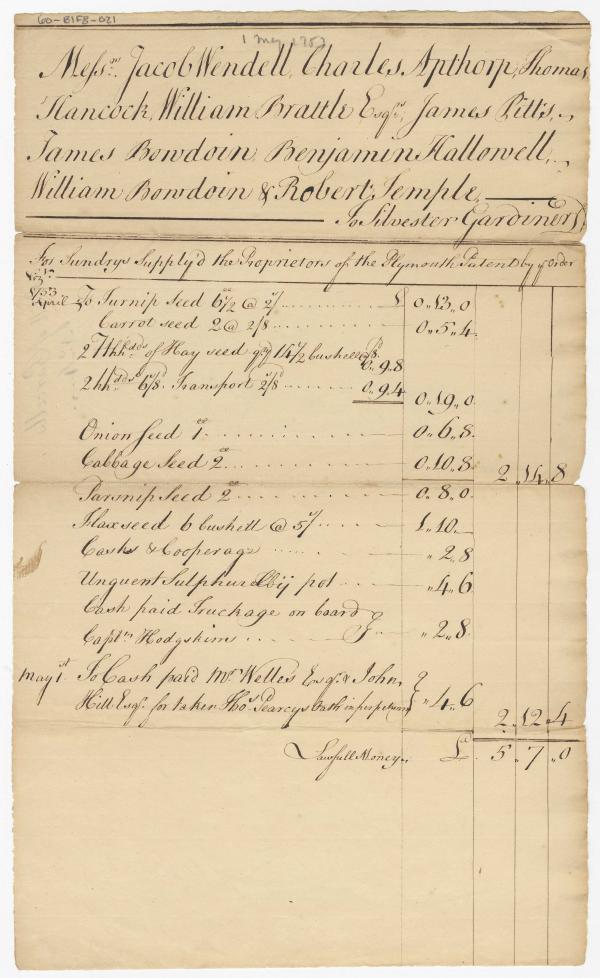 60-B1F8-021
1 May 1753
Messrs. Jacob Wendell, Charles Apthorp, Thomas
Hancock, William Brattle Esqrs, James Pitts,
James Bowdoin Benjamin Hallowell,
William Bowdoin & Robert Temple,
To Silvester Gardiner Dr
For Sundrys Supply'd the Proprietors of the Plymouth Patent by ye Order
Viz
1753
April To Turnip Seed 6 1/2 @ 2/ £ 0.13.0
Carrot seed 2 @ 2/8 0.5.4
2 hhds of Hay seed 14 1/2 bushells 0.9.8
2 hhds 6/8 Transport 2/8 0.9.4 0.19.0
Onion Seed 1 0.6.8
Cabbage Seed 2 0.10.8 2.14.8
Parsnip Seed 2 0.8.0
Flax seed 6 bushell @ 5/ 1.10.
Casks & Cooperage " 2.8
Unguent Sulphur lbij pot " 4.6
Cash paid Truckage on board
Captn Hodgskins " 2.8
May 1st To Cash paid Mr Welles Esq. & John
Hill Esq. for taken Thos Pearcys Oath in perpetuam " 4.6 2.12.4
Lawfull Money £ 5.7.0